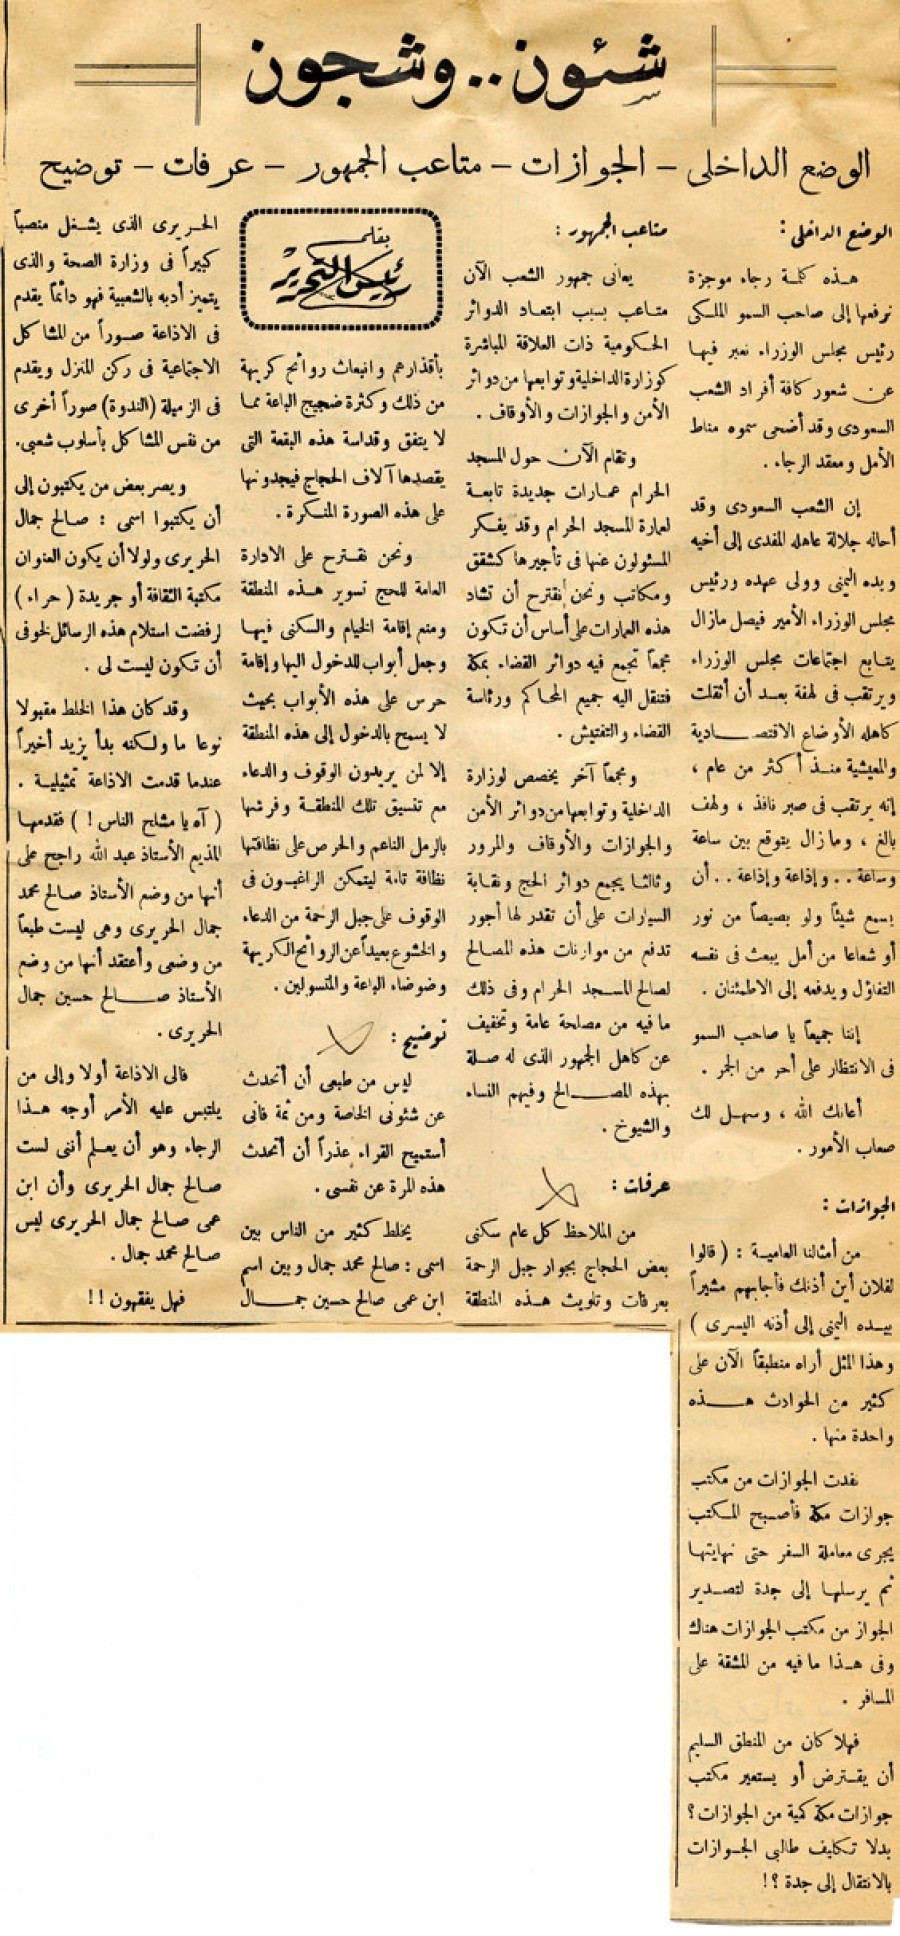 شئون .. وشجون
الوضع الداخلى - الجوازات - متاعب الجمهور - عرفات - توضيح
الوضع الداخلى :
هذه كلمة رجاء موجزة
نرفعها إلى صاحب السمو الملكى
رئيس مجلس الوزراء نعبر فيها
عن شعور كافة أفراد الشعب
السعودى وقد أضحى سموه مناط
الأمل ومعقد الرجاء .
إن الشعب السعودى وقد
أحاله جلالة عاهله المفدى إلى أخيه
ويده اليمنى وولى عهده ورئيس
مجلس الوزراء الأمير فيصل مازال
يتابع اجتماعات مجلس الوزراء
ويرتقب فى لهفة بعد أن أثقلت
كاهله الأوضاع الاقتصادية
والمعيشية منذ أكثر من عام ،
إنه يرتقب فى صبر نافذ ، ولهف
بالغ ، ومازال يتوقع بين ساعة
وساعة .. وإذاعة وإذاعة .. أن
يسمع شيئاً ولو بصيصاً من نور
أو شعاعا من أمل يبعث فى نفسه
التفاؤل ويدفعه إلى الاطمئنان .
إننا جميعاً يا صاحب السمو
فى الانتظار على أحر من الجمر .
أعانك الله ، وسهل لك
صعاب الأمور .
الجوازات :
من أمثالنا العامية : ( قالوا
لفلان أين أذنك فأجابهم مشيراً
بيده اليمنى إلى أذنه اليسرى )
وهذا المثل أراه منطبقاً الآن على
كثير من الحوادث هذه
واحدة منها .
نفدت الجوازات من مكتب
جوازات مكة فأصبح المكتب
يجرى معاملة السفر حتى نهايتها
ثم يرسلها إلى جدة لتصدير
الجواز من مكتب الجوازات هناك
وفى هذا ما فيه من المشقة على
المسافر .
فهلا كان من المنطق السليم
أن يقترض أو يستعير مكتب
جوازات مكة كمية من الجوازات ؟
بدلا تكليف طالبى الجوازات
بالانتقال إلى جدة ؟!
متاعب الجمهور :
يعانى جمهور الشعب الآن
متاعب بسبب ابتعاد الدوائر
الحكومية ذات العلاقة المباشرة
كوزارة الداخلية وتوابعها من دوائر
الأمن والجوازات والأوقاف .
وتقام الآن حول المسجد
الحرام عمارات جديدة تابعة
لعمارة المسجد الحرام وقد يفكر
المسئولون عنها فى تأجيرها كشقق
ومكاتب ونحن نقترح أن تشاد
هذه العمارات على أساس أن تكون
مجمعاً تجمع فيه دوائر القضاء بمكة
فتنقل اليه جميع المحاكم ورئاسة
القضاء والتفتيش .
ومجمعاً آخر يخصص لوزارة
الداخلية وتوابعها من دوائر الأمن
والجوازات والأوقاف والمرور
وثالثا يجمع دوائر الحج ونقابة
السيارات على أن تقدر لها أجور
تدفع من موازنات هذه المصالح
لصالح المسجد الحرام وفى ذلك
ما فيه من مصلحة عامة وتخفيف
عن كاهل الجمهور الذى له صلة
بهذه المصالح وفيهم النساء
والشيوخ .
عرفات :
من الملاحظ كل عام سكنى
بعض الحجاج بجوار جبل الرحمة
بعرفات وتلويث هذه المنطقة
بقلم
رئيس التحرير
بأقذارهم وانبعاث روائح كريهة
من ذلك وكثرة ضجيج الباعة مما
لا يتفق وقداسة هذه البقعة التى
يقصدها آلاف الحجاج فيجدونها
على هذه الصورة المنكرة .
ونحن نقترح على الادارة
العامة للحج تسوير هذه المنطقة
ومنع إقامة الخيام والسكنى فيها
وجعل أبواب للدخول اليها وإقامة
حرس على هذه الأبواب بحيث
لا يسمح بالدخول إلى هذه المنطقة
إلا لمن يريدون الوقوف والدعاء
مع تنسيق تلك المنطقة وفرشها
بالرمل الناعم والحرص على نظافتها
نظافة تامة ليتمكن الراغبون فى
الوقوف على جبل الرحمة من الدعاء
والخشوع بعيداً عن الروائح الكريهة
وضوضاء الباعة والمتسولين .
توضيح :
ليس من طبعى أن أتحدث
عن شئونى الخاصة ومن ثمة فانى
أستميح القراء عذراً أن أتحدث
هذه المرة عن نفسى .
يخلط كثير من الناس بين
اسمى : صالح محمد جمال وبين اسم
ابن عمى صالح حسين جمال
الحريرى الذى يشغل منصباً
كبيراً فى وزارة الصحة والذى
يتميز أدبه بالشعبية فهو دائماً يقدم
فى الاذاعة صوراً من المشاكل
الاجتماعية فى ركن المنزل ويقدم
فى الزميلة (الندوة) صوراً أخرى
من نفس المشاكل بأسلوب شعبى.
ويصر بعض من يكتبون إلى
أن يكتبوا اسمى : صالح جمال
الحريرى ولولا أن يكون العنوان
مكتبة الثقافة أو جريدة ( حراء )
لرفضت استلام هذه الرسائل لخوفى
أن تكون ليست لى .
وقد كان هذا الخلط مقبولا
نوعا ما ولكنه بدأ يزيد أخيراً
عندما قدمت الاذاعة تمثيلية .
( آه يا مشلح الناس ! ) فقدمها
المذيع الأستاذ عبد الله راجح على
أنها من وضع الأستاذ صالح محمد
جمال الحريرى وهى ليست طبعاً
من وضعى وأعتقد أنها من وضع
الأستاذ صالح حسين جمال
الحريرى .
فالى الاذاعة أولا وإلى من
يلتبس عليه الأمر أوجه هذا
الرجاء وهو أن يعلم أننى لست
صالح جمال الحريرى وأن ابن
عمى صالح جمال الحريرى ليس
صالح محمد جمال .
فهل يفقهون !!